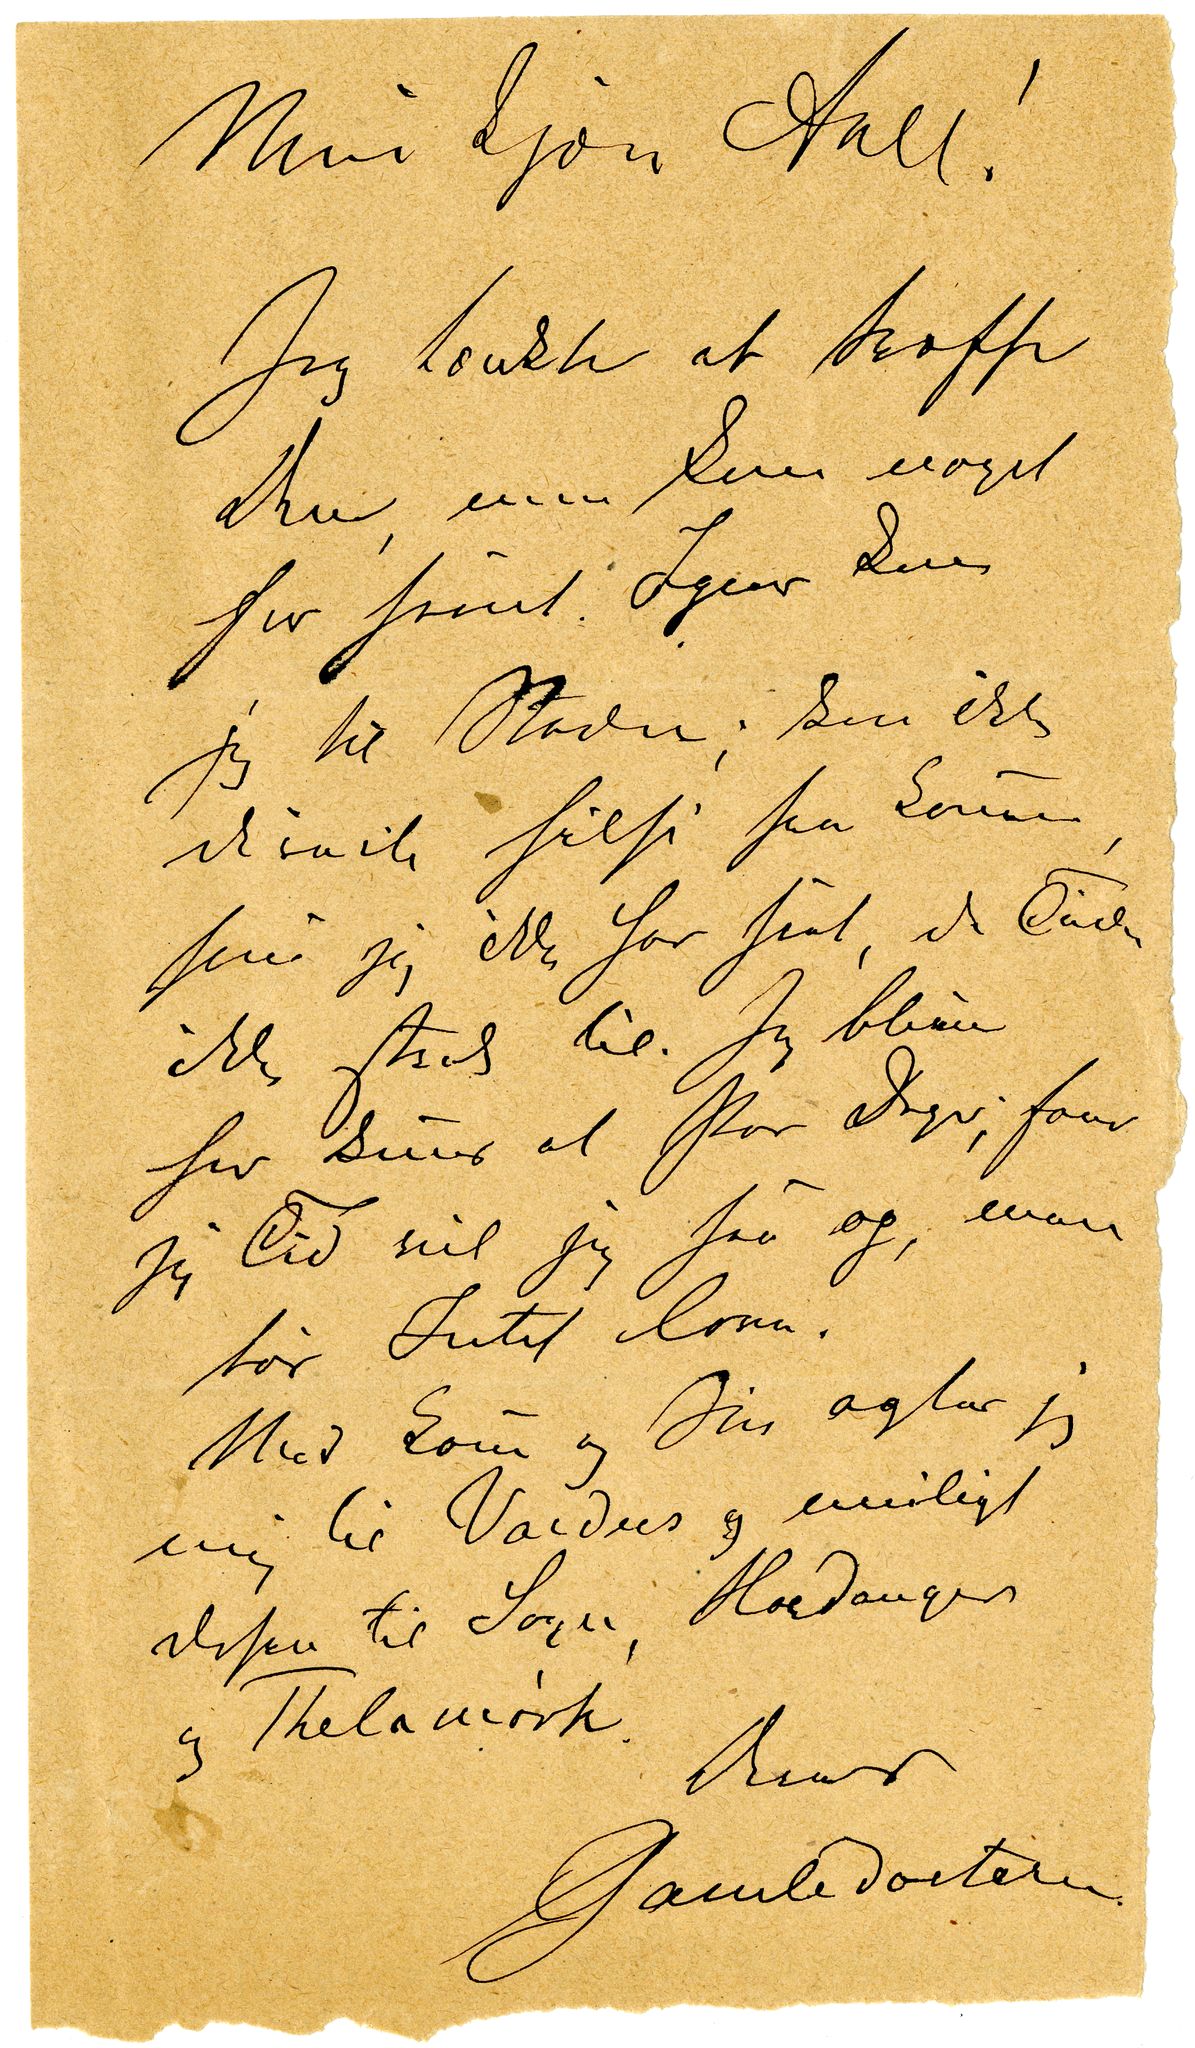 Min kjære Aall!
Jeg tænkte at træffe
Dem, men kom noget
for sent. Igaar kom
jeg til Staden; kan ikke
desværre hilse fra
som jeg ikke har seet, da Tiden
ikke strak til. Jeg bliver
her kuns et Par Dage; faar
jeg Tid vil jeg op, man
tør Intet love.
Med og agter jeg
mig til Valders og muligt
derfra til Sogn, Hardanger
og Thelamörk.
Deres
Gamledoctern.